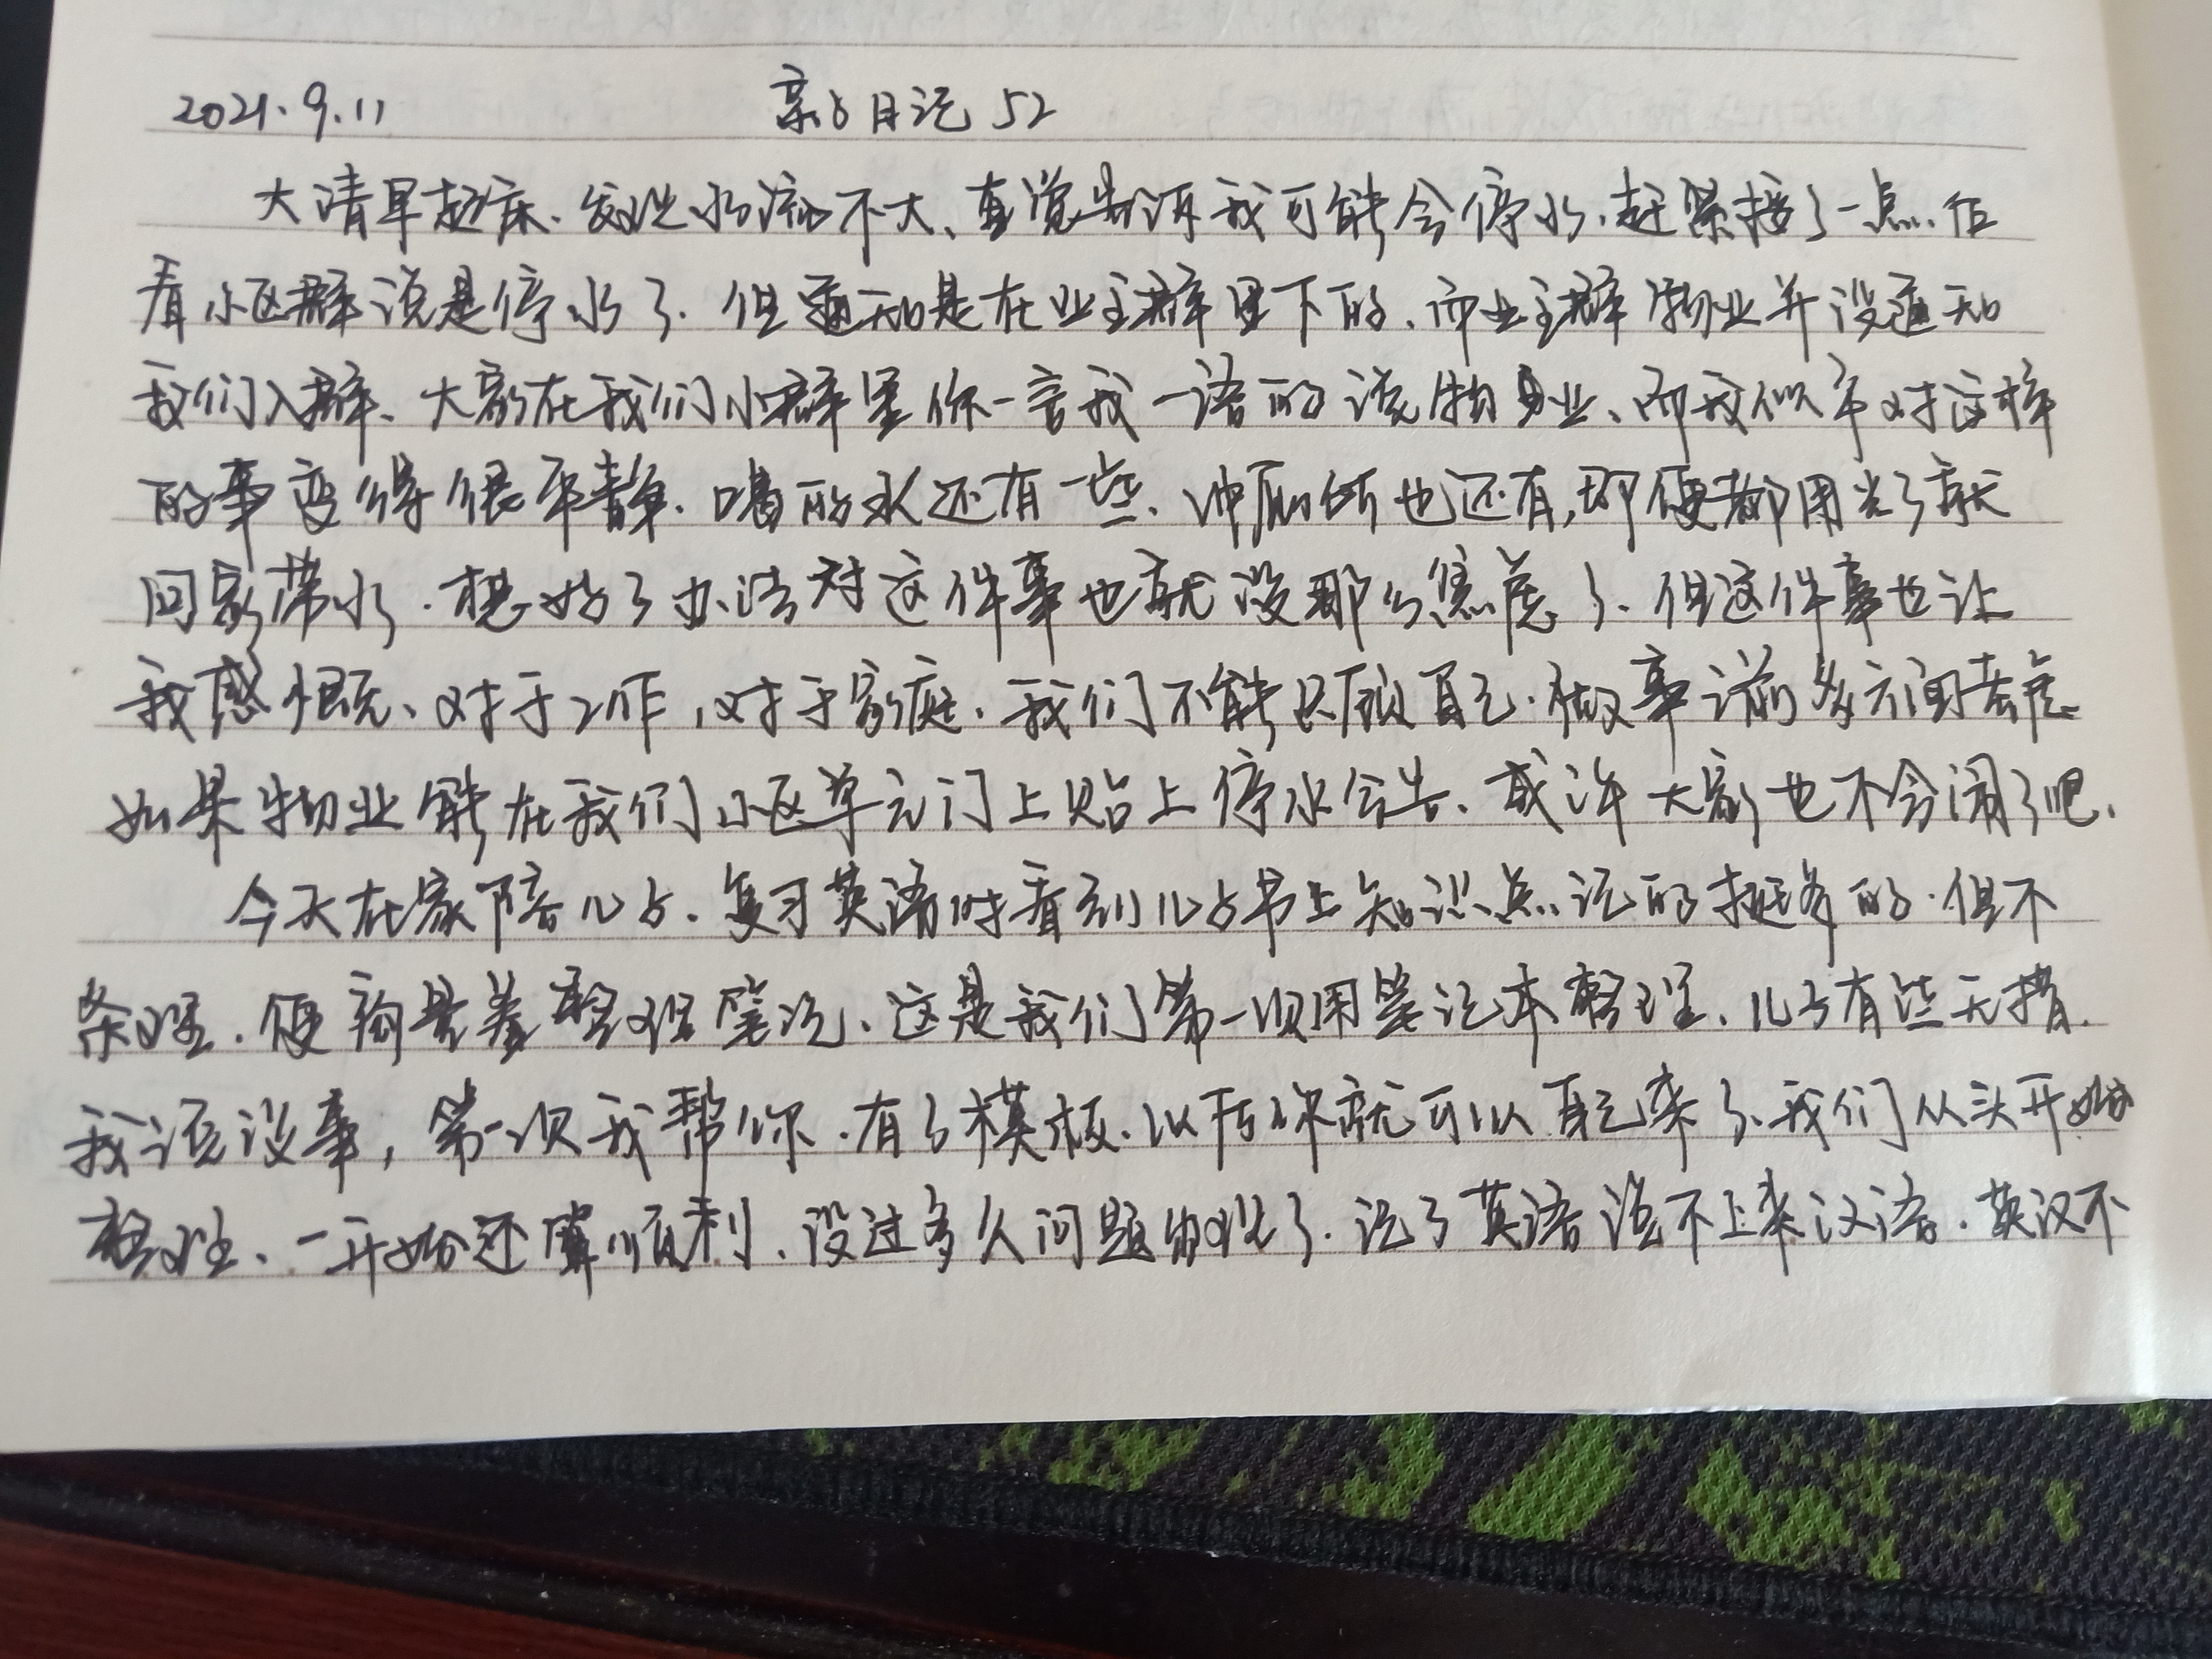 2021.9.11 亲子日记 52
大清早起床、发现水流不大、直觉告诉我可能会停水、赶紧接了一点.后
看小区群说是停水了.但通知是在业主群里下的、而业主群物业并没通知
我们入群、大家在我们小群里你一言我一语的说物业、而我似乎对这样
的事变得很平静.喝的水还有一些、冲厕所也还有,即便都用光了就
回家带水.想好了办法对这件事也就没那么焦虑了、但这件事也让
我感慨、对于工作,对于家庭、我们不能只顾自己.做事前多方面考虑
如果物业能在我们小区单元门上贴上停水公告、或许大家也不会闹了吧.
今天在家陪儿子.复习英语时看到儿子书上知识点记的挺多的.但不
条理.便整理笔记、这是我们第一次用笔记本整理、儿子有些无措.
我说没事,第一次我帮你.有了模板.以后你就可以自己来了、我们从头开始
整理、一开始还算顺利、没过多久问题出现了.记了英语说不上来汉语.英汉不